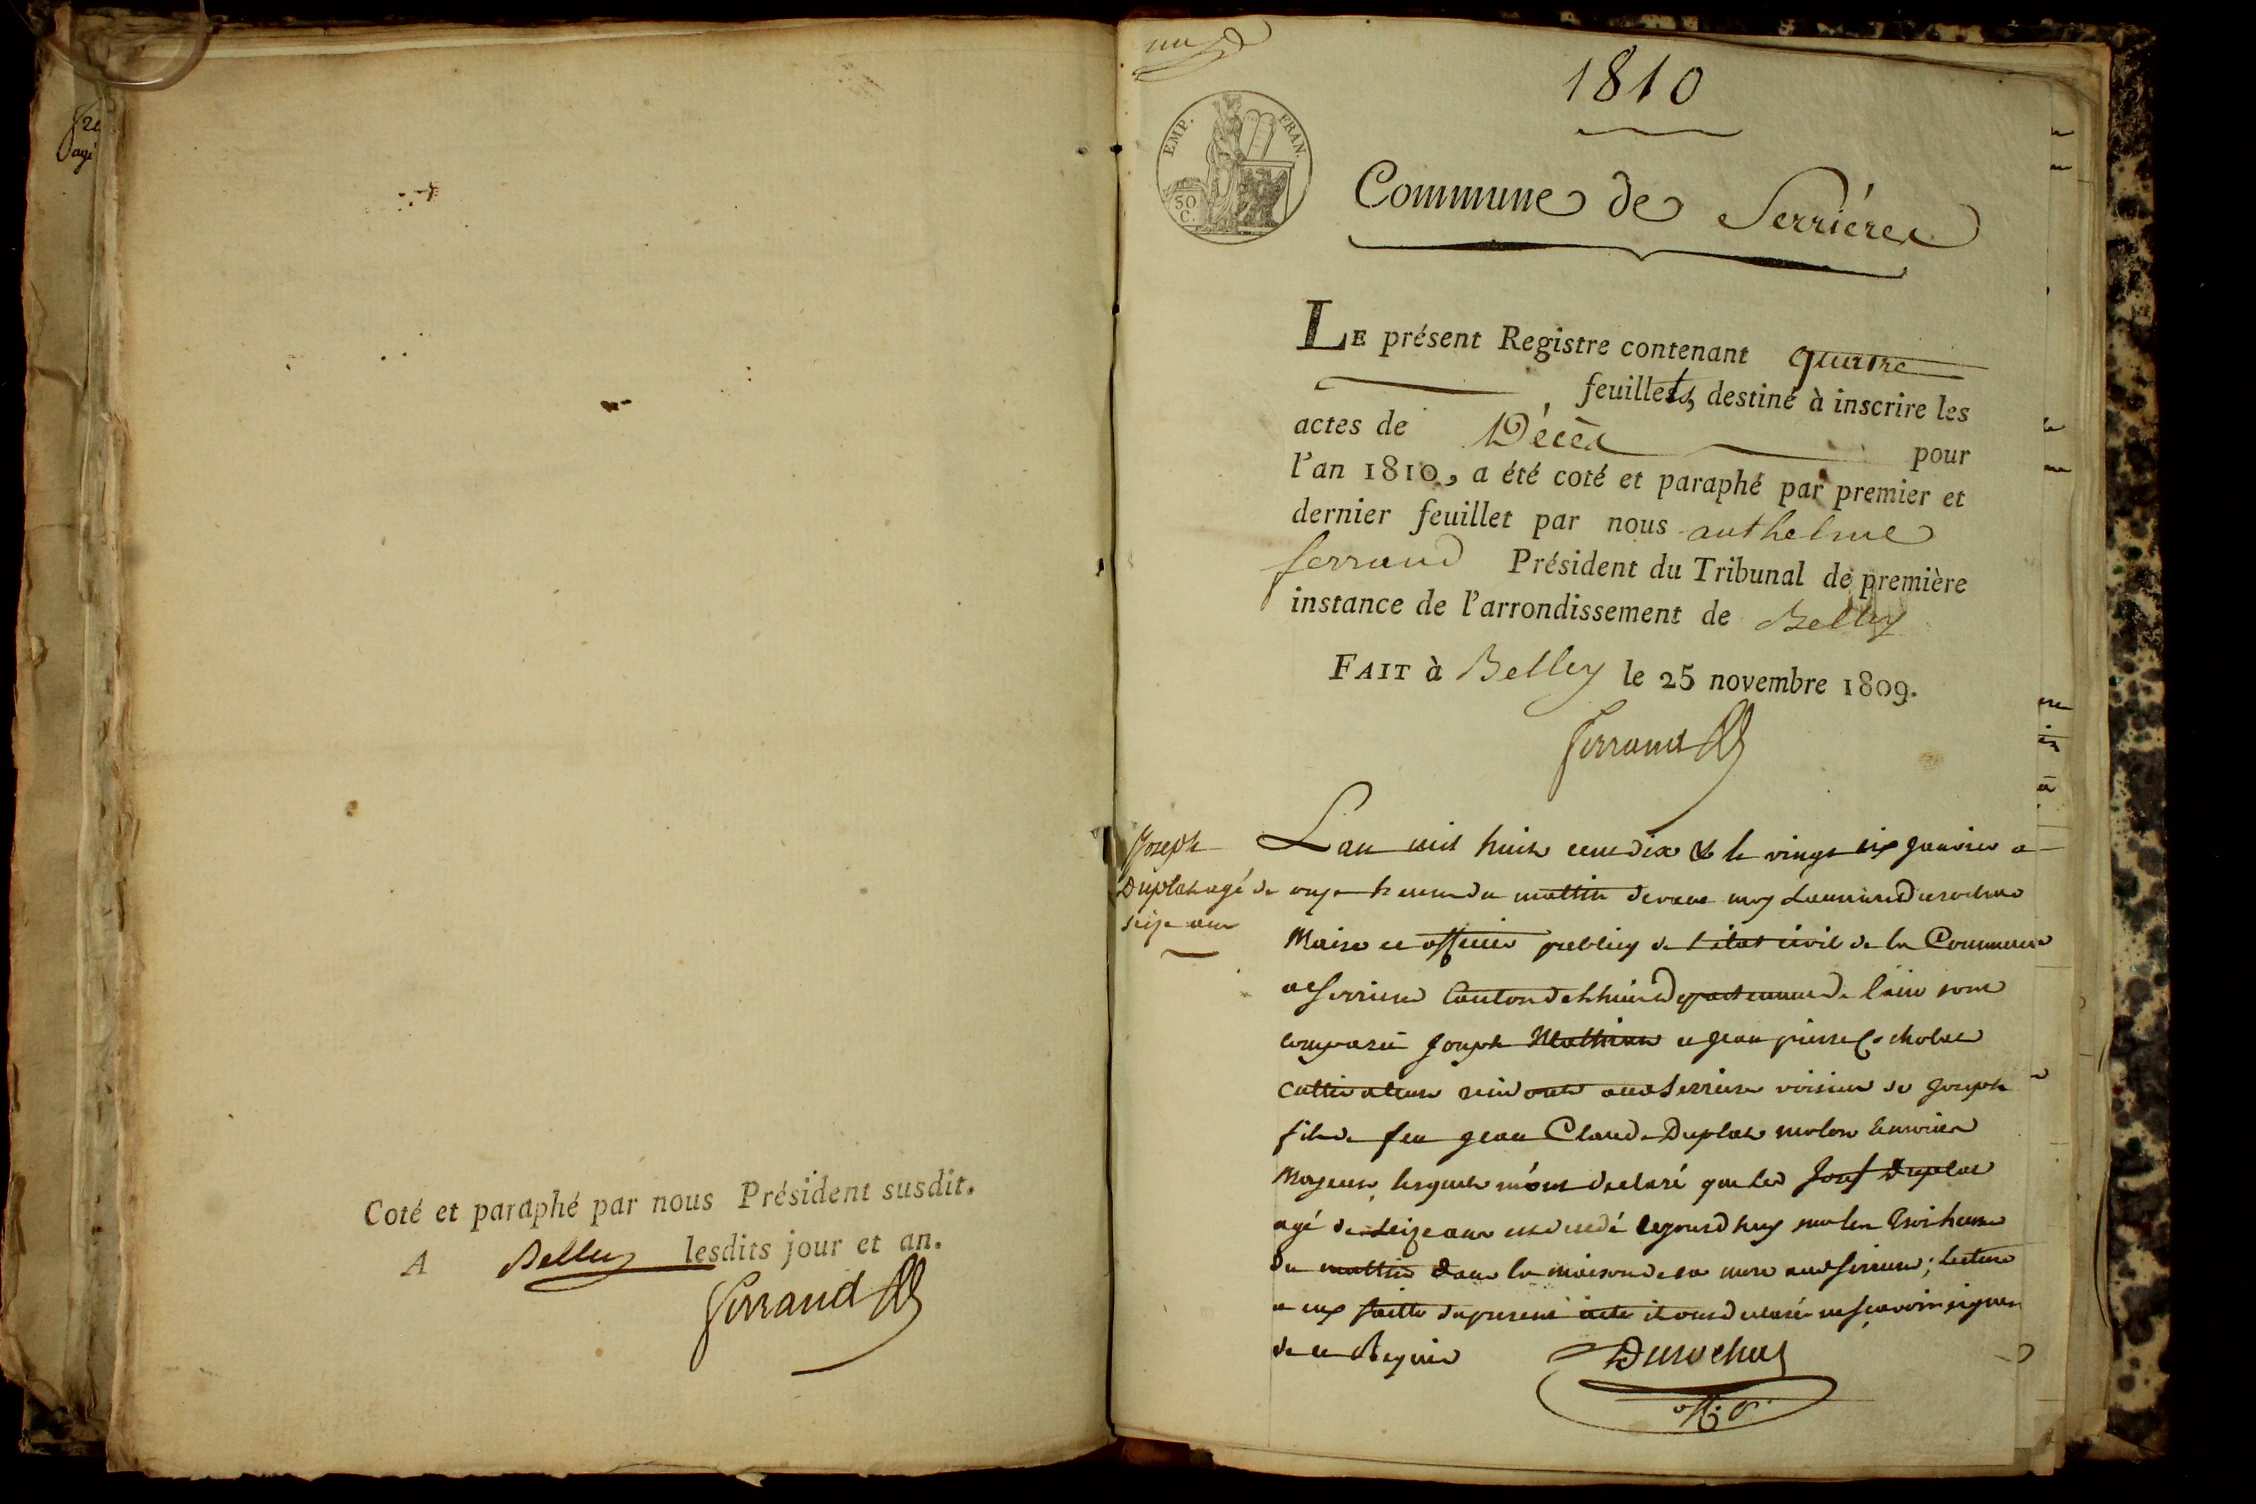 Coté et paraphé par nous Président susdit.
A Belley lesdits jour et an.
Ferrand
un
1810
EMP. FRAN.
50 C.
Commune de Serrières
LE présent Registre contenant quatre
feuillets, destiné à inscrire les
actes de Décès pour
l'an 1810, a été coté et paraphé par premier et
dernier feuillet par nous anthelme
ferrand Président du Tribunal de première
instance de l'arrondissement de Belley
FAIT à Belley le 25 novembre 1809.
Ferrand
Joseph
Duplat agé de
seize ans
L'an mil huit cent dix & le vingt six janvier a
onze heures du mattin devant moy Durochat
Maire et officier publiq de l'état civil de la Commune
de Serriere Canton de Lhuis Departement de l'ain sont
comparu Joseph et jean pierre
Cultivateurs residants aud Serriere voisins de Joseph
fils de feu jean Claude Duplat
lesquels m'ont declaré que led Josef Duplat
agé de seize ans est decedé cejourd'huy sur les trois heures
du mattin dans la maison de sa mere aud Serriere; lecture
a eux faitte du present acte ils ont declaré ne scavoir signer
de ce Requis Durochat